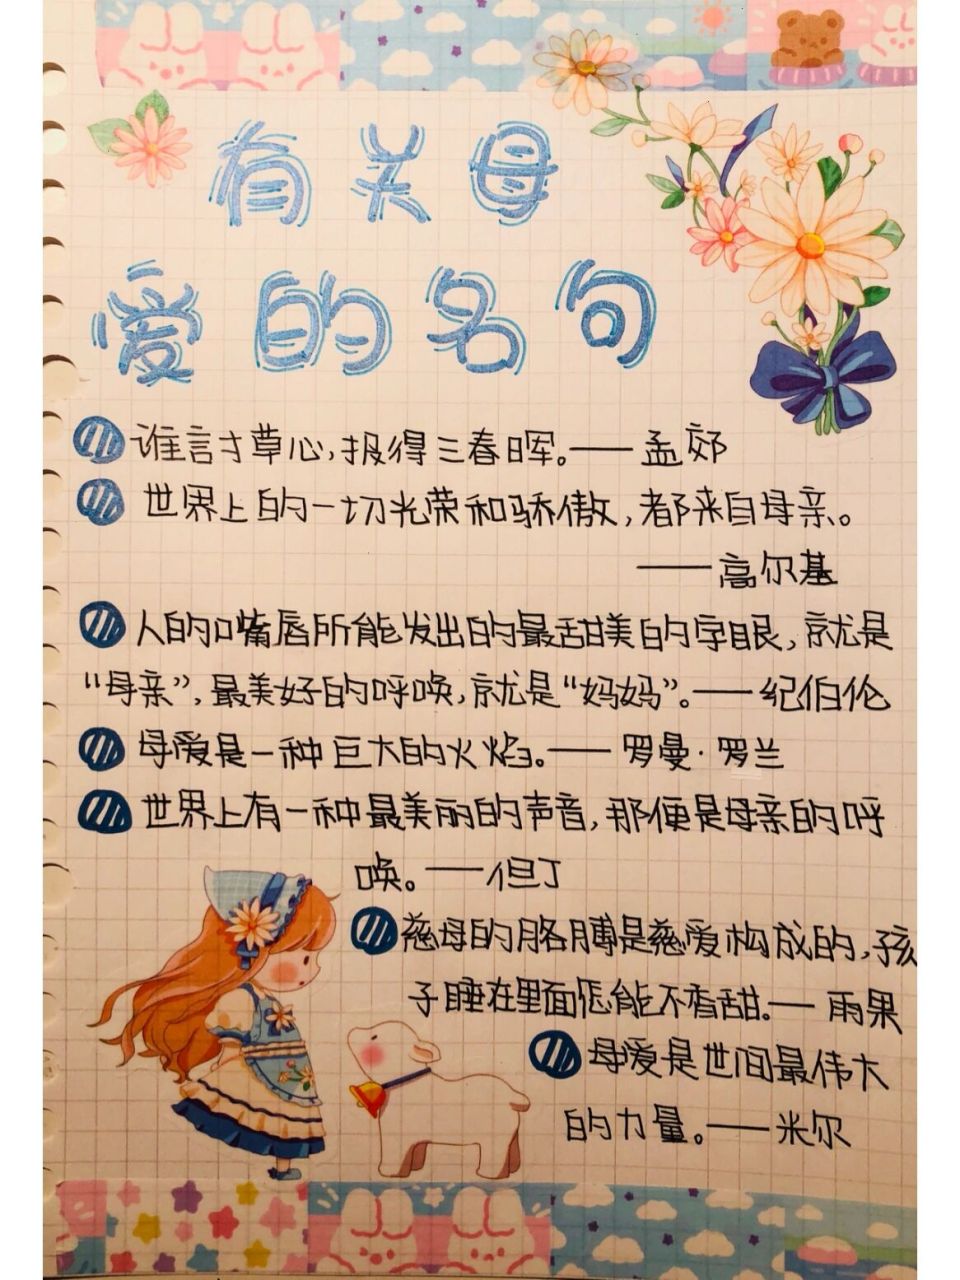 有关母
爱的名句
谁言寸草心,报得三春晖。——孟郊
世界上的一切光荣和骄傲,都来自母亲。
——高尔基
人的口嘴唇所能发出的最甜美的字眼,就是
“母亲”,最美好的呼唤,就是“妈妈”。——纪伯伦
母爱是一种巨大的火焰。——罗曼·罗兰
世界上有一种最美丽的声音,那便是母亲的呼
唤。——但丁
慈母的胳膊是慈爱构成的,孩
子睡在里面怎能不香甜。—雨果
母爱是世间最伟大
的力量。——米尔